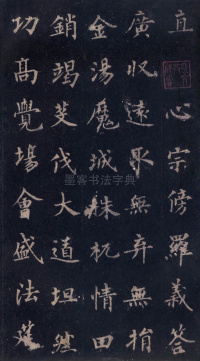 直心宗傍羅義筌
廣收遠取無弃無捐
金湯魔城株杌情田
銷竭芟伐大道坦然
功高覺場會盛法筵
墨客书法字典